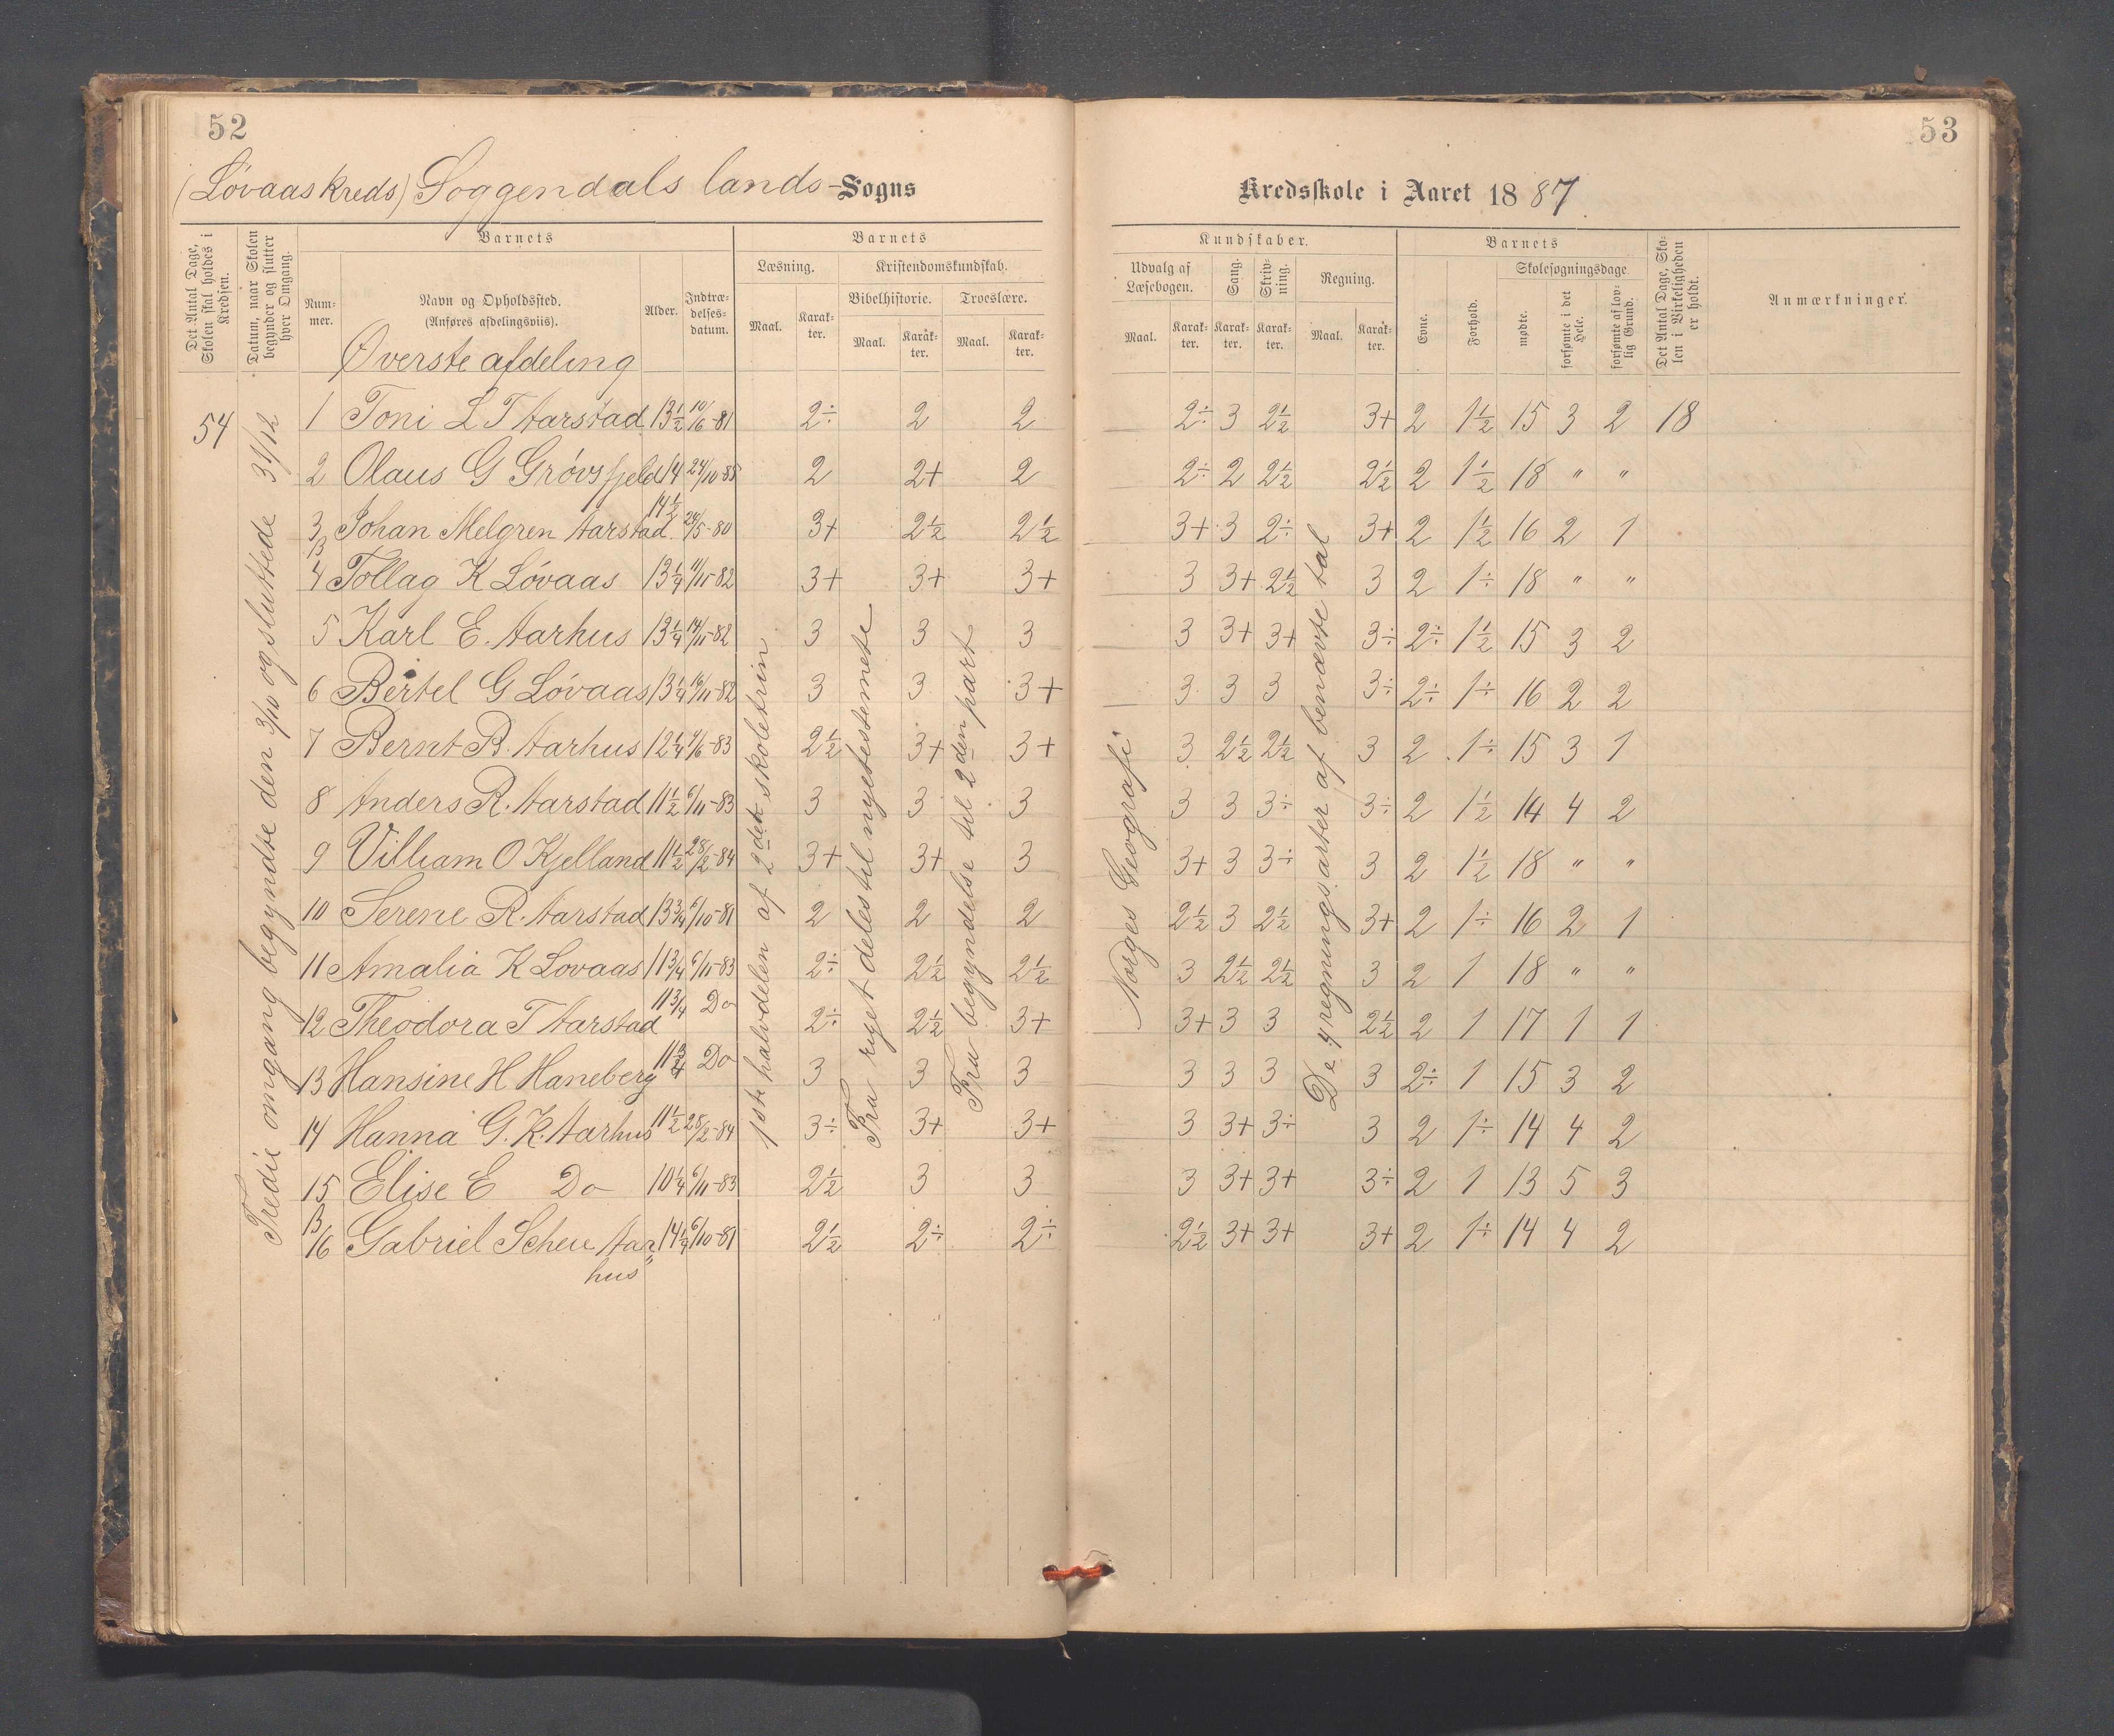 52
(Løvaas kreds) Soggendals lands-Sogns
Det Antal Dage, Skolen skal holdes i Kredsen.
Datum, naar Skolen begynder og slutter hver Omgang.
Barnets
Nummer.
Navn og Opholdssted.
(Anføres afdelingsviis).
Alder.
Indtrædelsesdatum.
Barnets
Læsning.
Maal.
Karakter.
Kristendomskundskab.
Bibelhistorie.
Maal.
Karakter.
Troeslære.
Maal.
Karakter.
Øverste afdeling
54
Tredie omgang begyndte den 3/10 og sluttede 31/12
1ste halvdelen af 2det skoletrin
Fra riget deles til nyetestemete
Fra begyndelse til 2den part
1 Toni L T Aarstad 13½ 10/6-81 2÷ 2 2
2 Olaus G Grøvsfjeld 14 24/10-85 2 2+ 2
3 Johan Melgren Aarstad 14½ 24/5-80 3+ 2½ 2½
13
4 Tollag K Løvaas 13¼ 11/11-82 3+ 3+ 3+
5 Karl E. Aarhus 13¼ 14/11-82 3 3 3
6 Bertel G Løvaas 13¼ 16/11-82 3 3 3+
7 Bernt B. Aarhus 12¼ 9/6-83 2½ 3+ 3+
8 Anders R. Aarstad 11½ 6/11-83 3 3 3
9 Villiam O Kjelland 11½ 28/2-84 3+ 3+ 3
10 Serene R. Aarstad 13¾ 6/10-81 2 2 2
11 Amalia K Lovaas 11¾ 6/11-83 2÷ 2½ 2½
12 Theodora T Aarstad 11¾ Do 2÷ 2½ 3+
13 Hansine H Haneberg 11¾ Do 3 3 3
14 Hanna G. K. Aarhus 11½ 28/2-84 3÷ 3+ 3+
15 Elise E Do 10¼ 6/11-83 2½ 3 3
13
16 Gabriel Scheie Aarhus 14¼ 6/10-81 2½ 2÷ 2÷
53
Kredsskole i Aaret 1887.
Kundskaber.
Udvalg af Læsebogen.
Maal.
Karakter.
Sang.
Karakter.
Skrivning.
Karakter.
Regning.
Maal.
Karakter.
Barnets
Evne.
Forhold.
Skolesøgningsdage
mødte.
forsømte i det Hele.
forsømte af lovlig Grund.
Det Antal Dage, Skolen i Virkeligheden er holdt.
Anmærkninger.
Norges Geografi
De 4 regningsarter af benævte tal
2÷ 3 2½ 3+ 2 1½ 15 3 2 18
2÷ 2 2½ 2½ 2 1½ 18 " "
3+ 3 2÷ 3+ 2 1½ 16 2 1
3 3+ 2½ 3 2 1÷ 18 " "
3 3+ 3+ 3÷ 2÷ 1½ 15 3 2
3 3 3 3÷ 2÷ 1÷ 16 2 2
3 2½ 2½ 3 2 1÷ 15 3 1
3 3 3÷ 3÷ 2 1½ 14 4 2
3+ 3 3÷ 3 2 1½ 18 " "
2½ 3 2½ 3+ 2 1÷ 16 2 1
3 2½ 2½ 3 2 1 18 " "
3+ 3 3 2½ 2 1 17 1 1
3 3 3 3 2÷ 1 15 3 2
3 3+ 3÷ 3 2 1÷ 14 4 2
3 3+ 3+ 3÷ 2 1 13 5 3
2½ 3+ 3+ 3+ 2 1÷ 14 4 2